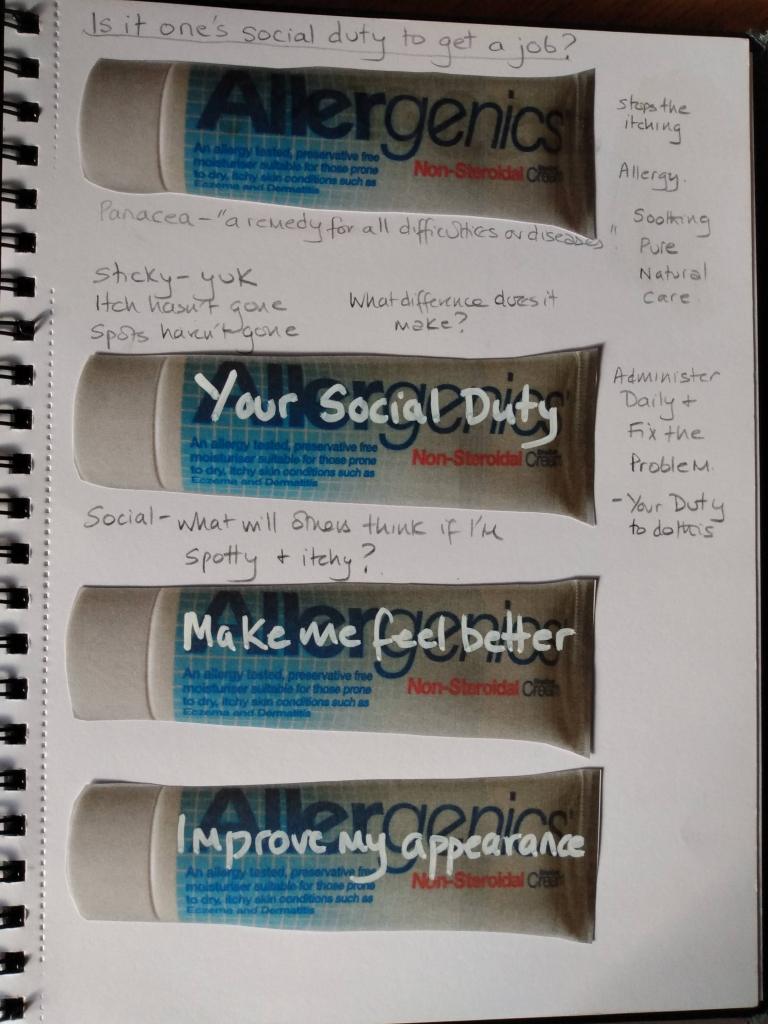 Is it one's social duty to get a job?
Allergenics
An allergy tested, preservative free
moisturiser suitable for those prone
to dry, itchy skin conditions such as
Eczema and Dermatitis
Non-Steroidal Cream
stops the
itching
Allergy.
Soothing
Pure
Natural
Care.
Panacea - "a remedy for all difficulties or diseases"
Sticky - yuk
Itch hasn't gone
Spots haven't gone
What difference does it
make?
Allergenics
Your Social Duty
An allergy tested, preservative free
moisturiser suitable for those prone
to dry, itchy skin conditions such as
Eczema and Dermatitis
Non-Steroidal Cream
Administer
Daily +
Fix the
Problem.
- Your Duty
to do this
Social - what will others think if I'm
spotty + itchy?
Allergenics
Make me feel better
An allergy tested, preservative free
moisturiser suitable for those prone
to dry, itchy skin conditions such as
Eczema and Dermatitis
Non-Steroidal Cream
Allergenics
Improve my appearance
An allergy tested, preservative free
moisturiser suitable for those prone
to dry, itchy skin conditions such as
Eczema and Dermatitis
Non-Steroidal Cream